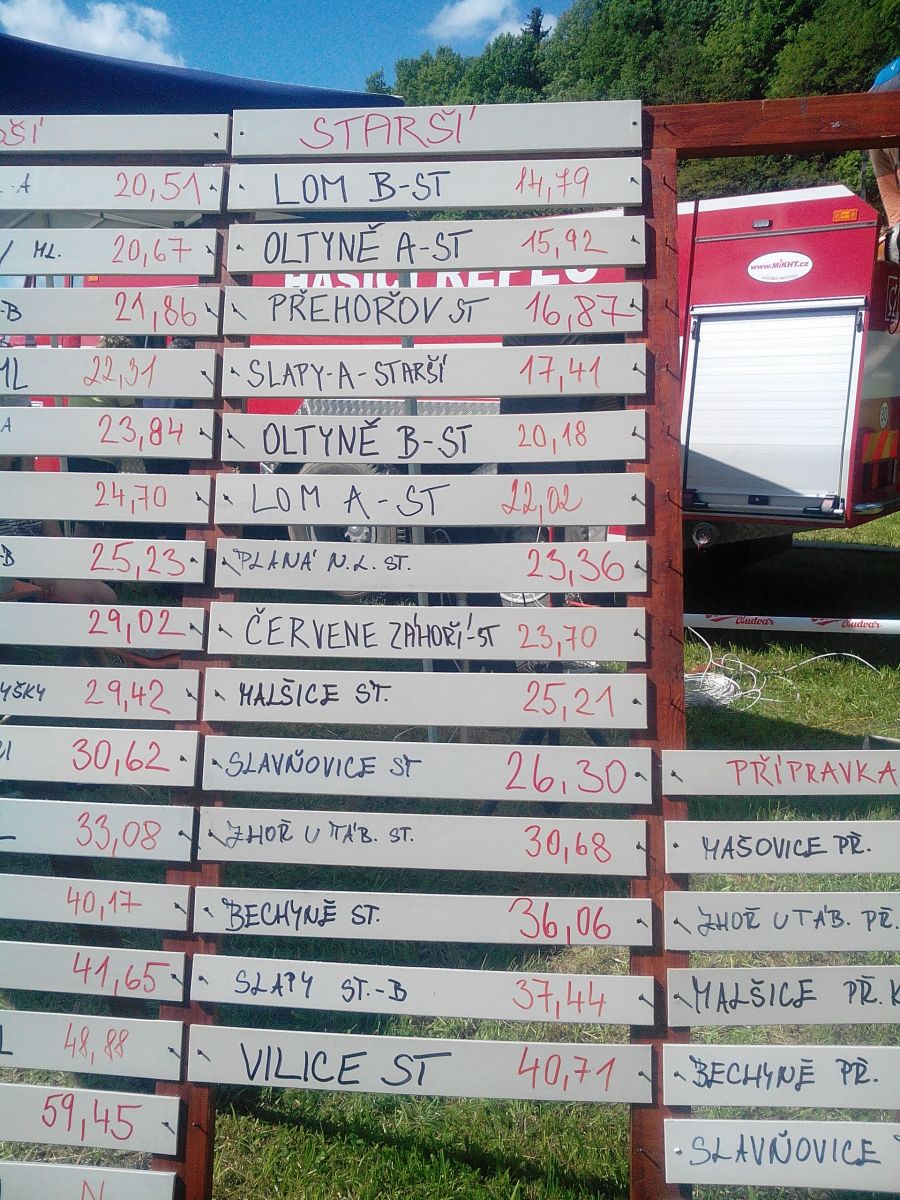 STARŠÍ
20,51
20,67
21,86
22,31
23,84
24,70
25,23
29,02
29,42
30,62
33,08
40,17
41,65
48,88
59,45
N
LOM B-ST 14,79
OLTYNĚ A-ST 15,92
PŘEHOŘOV ST 16,87
SLAPY-A-STARŠÍ 17,41
OLTYNĚ B-ST 20,18
LOM A-ST 22,02
PLANÁ N.L. ST. 23,36
ČERVENE ZÁHOŘÍ-ST 23,70
MALŠICE ST. 25,21
SLAVŇOVICE ST 26,30
ZHOŘ U TÁB. ST. 30,68
BECHYNĚ ST. 36,06
SLAPY ST.-B 37,44
VILICE ST 40,71
PŘÍPRAVKA
MAŠOVICE PŘ.
ZHOŘ U TÁB. PŘ.
MALŠICE PŘ. K
BECHYNĚ PŘ.
SLAVŇOVICE
www.MiKHT.cz